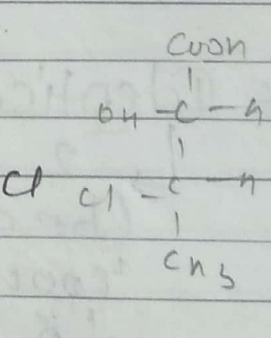 COOH
OH - C - H
Cl Cl - C - H
CH3